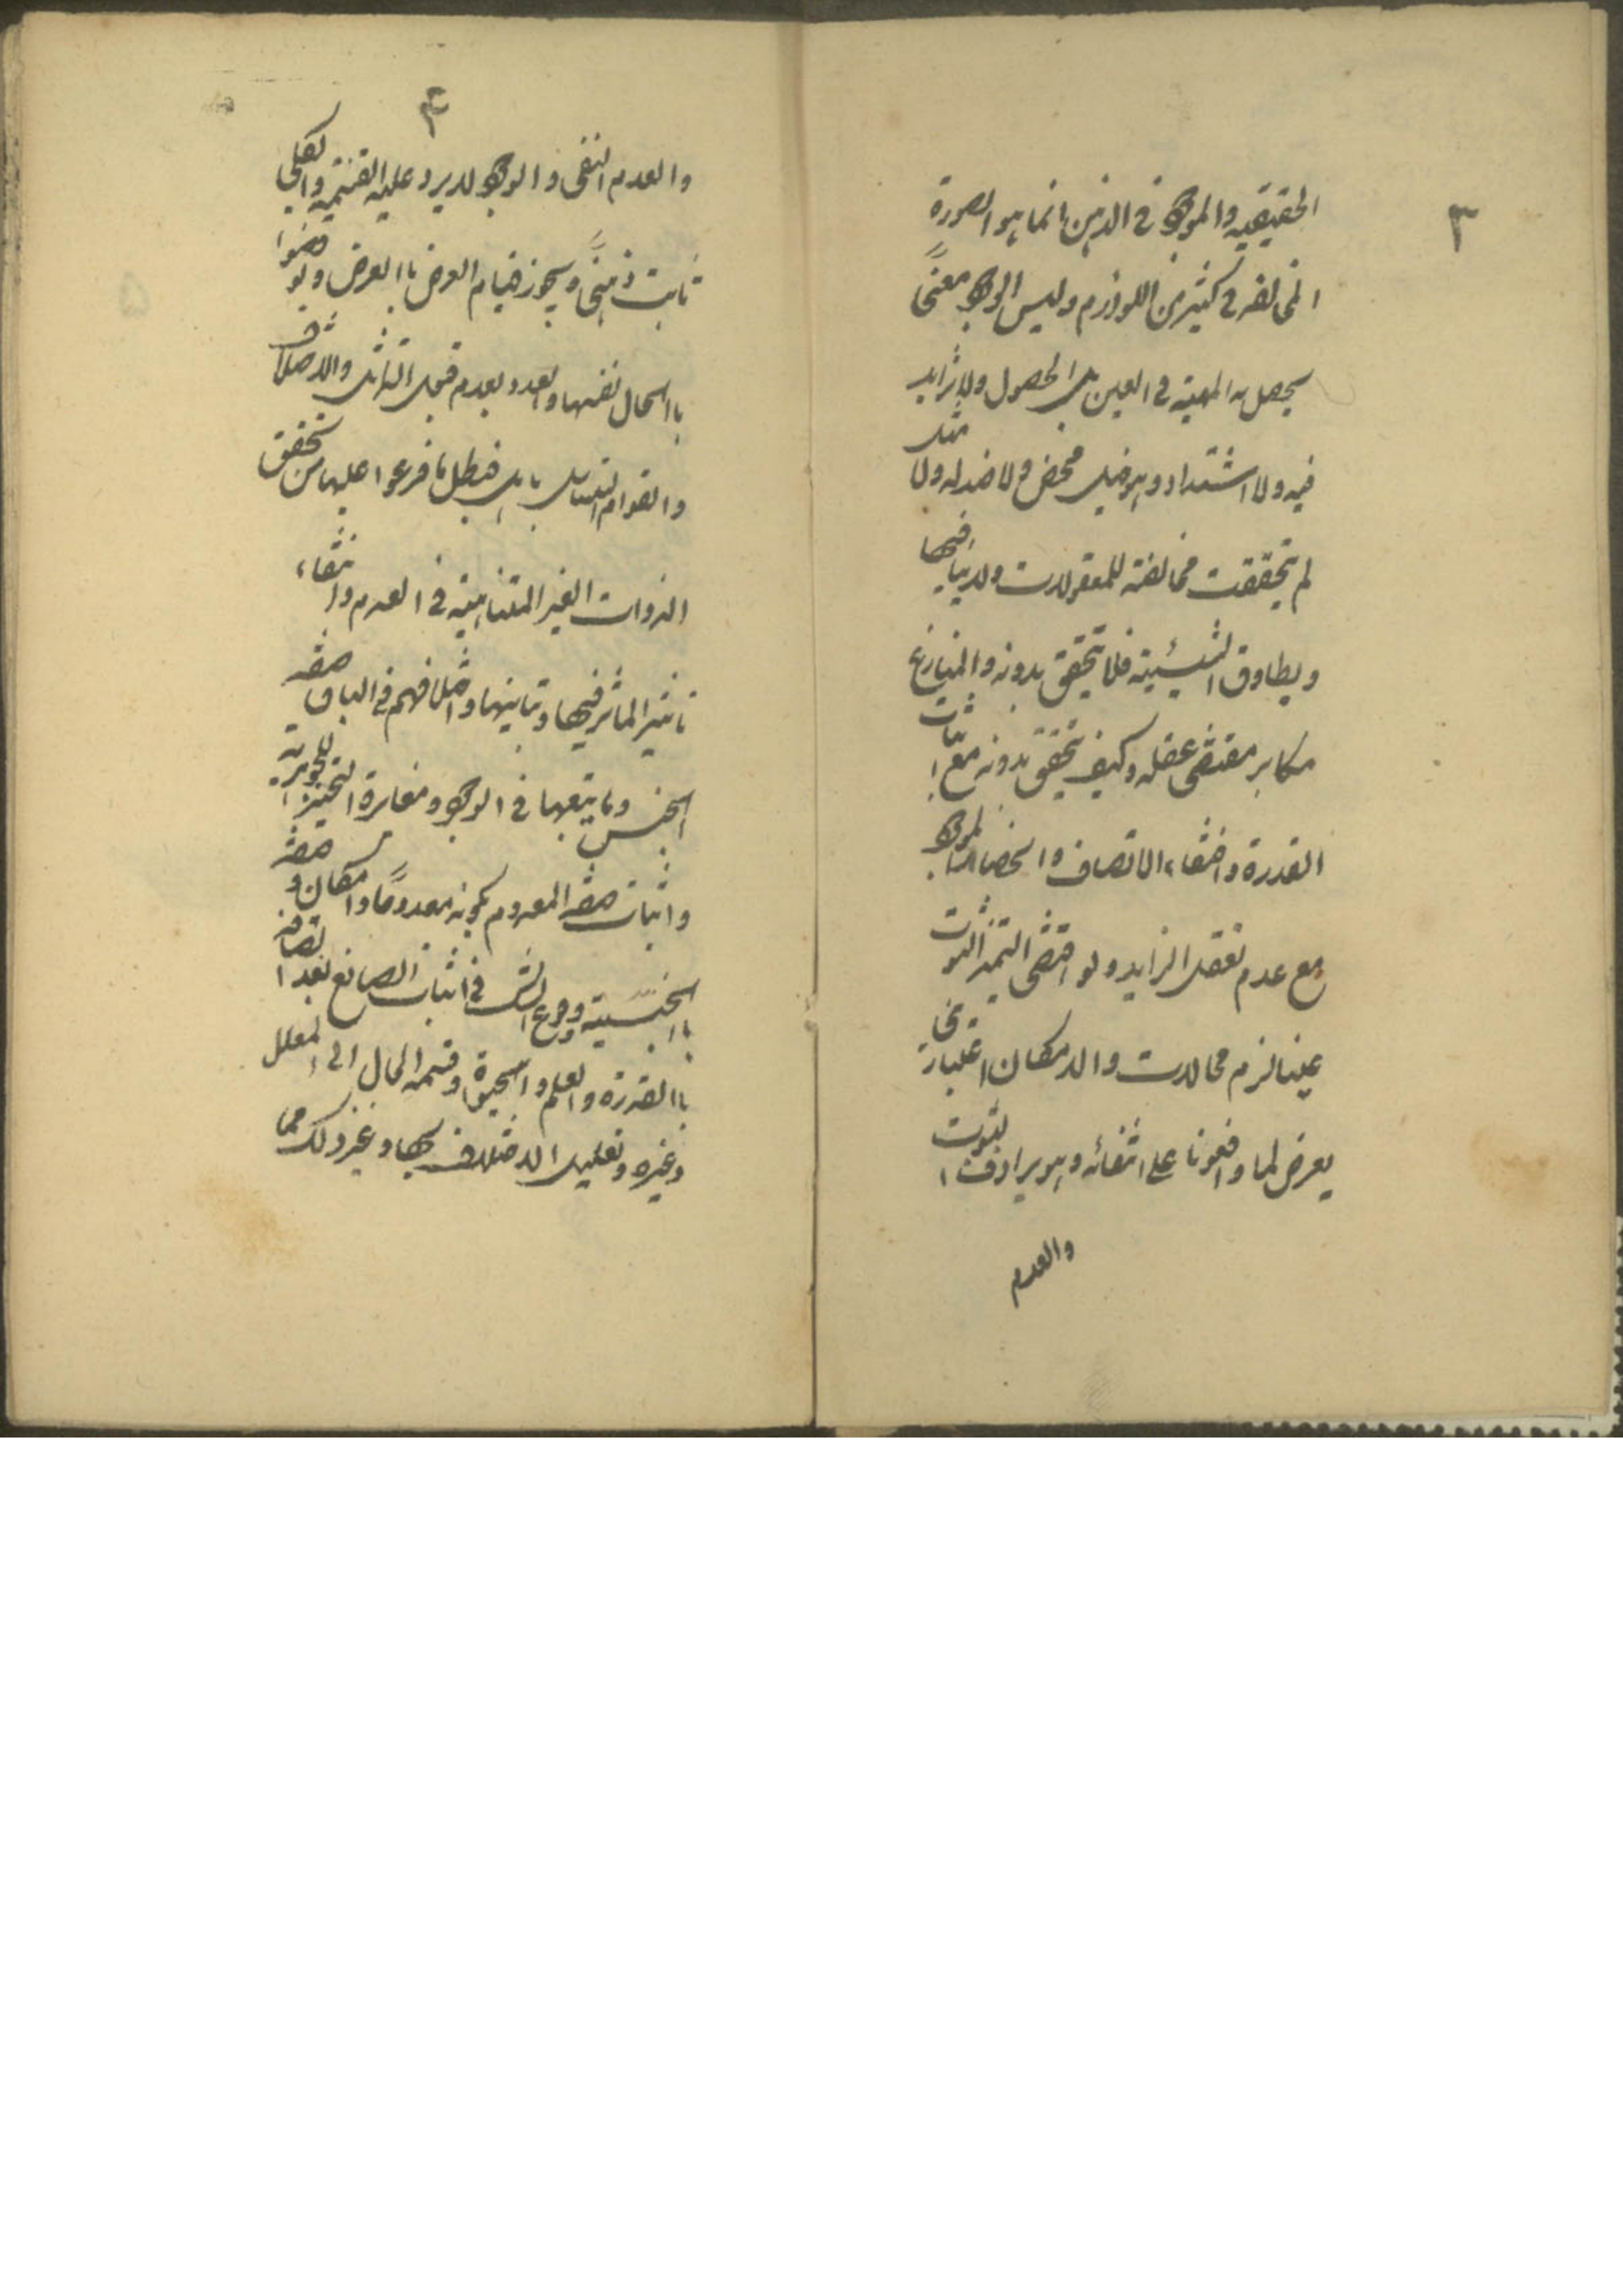 ٣
الحقيقيه والموجود في الذهن انما هو الصورة
المخالفه في كثير من اللوازم وليس الوجود معنًى
يحصل به المهية في العين بل الحصول ولا تزايد
فيه ولا اشتداد وهو خير محض ولا ضد له ولا مثل
لم تحققت مخالفته للمعقولات ولا ينافيها
ويساوق الشيئية فلا تتحقق بدونه والمنازع
مكابر مقتضى عقله وكيف تتحقق بدونه مع اثبات
القدرة وانتفاء الاتصاف وانحصار الموجود
مع عدم تعقل الزايد ولو اقتضى التميز الثبوت
عينا لزم محالات والامكان اعتباري
يعرض لما وافقونا على انتفائه وهو يرادف الثبوت
والعدم
٤
والعدم النفى والوجود لا يرد عليه القسمة والكلي
ثابت ذهنًى ويجوز قيام العرض باالعرض ونو قضوا
باالحال نفسها والعدد بعدم قبول التماثل والاختلاف
والتزام التسلسل باطل فبطل ما فرعوا عليها من تحقق
الذوات الغير المتناهية في العدم وانتفاء
تاثير المؤثر فيها وتباينها واختلافهم في اثبات صفه
الجنس وما يتبعها في الوجود ومغايرة التحيز للجوهرية
واثبات صفه المعدوم بكونه معدومًا وامكان وصفه
باالجسمية ووقوع الشك في اثبات الصانع بعد اتصافه
باالقدرة والعلم والحيوة وقسمه الحال الى المعلل
وغيره وتعليل الاختلاف بها وغير ذلك مما